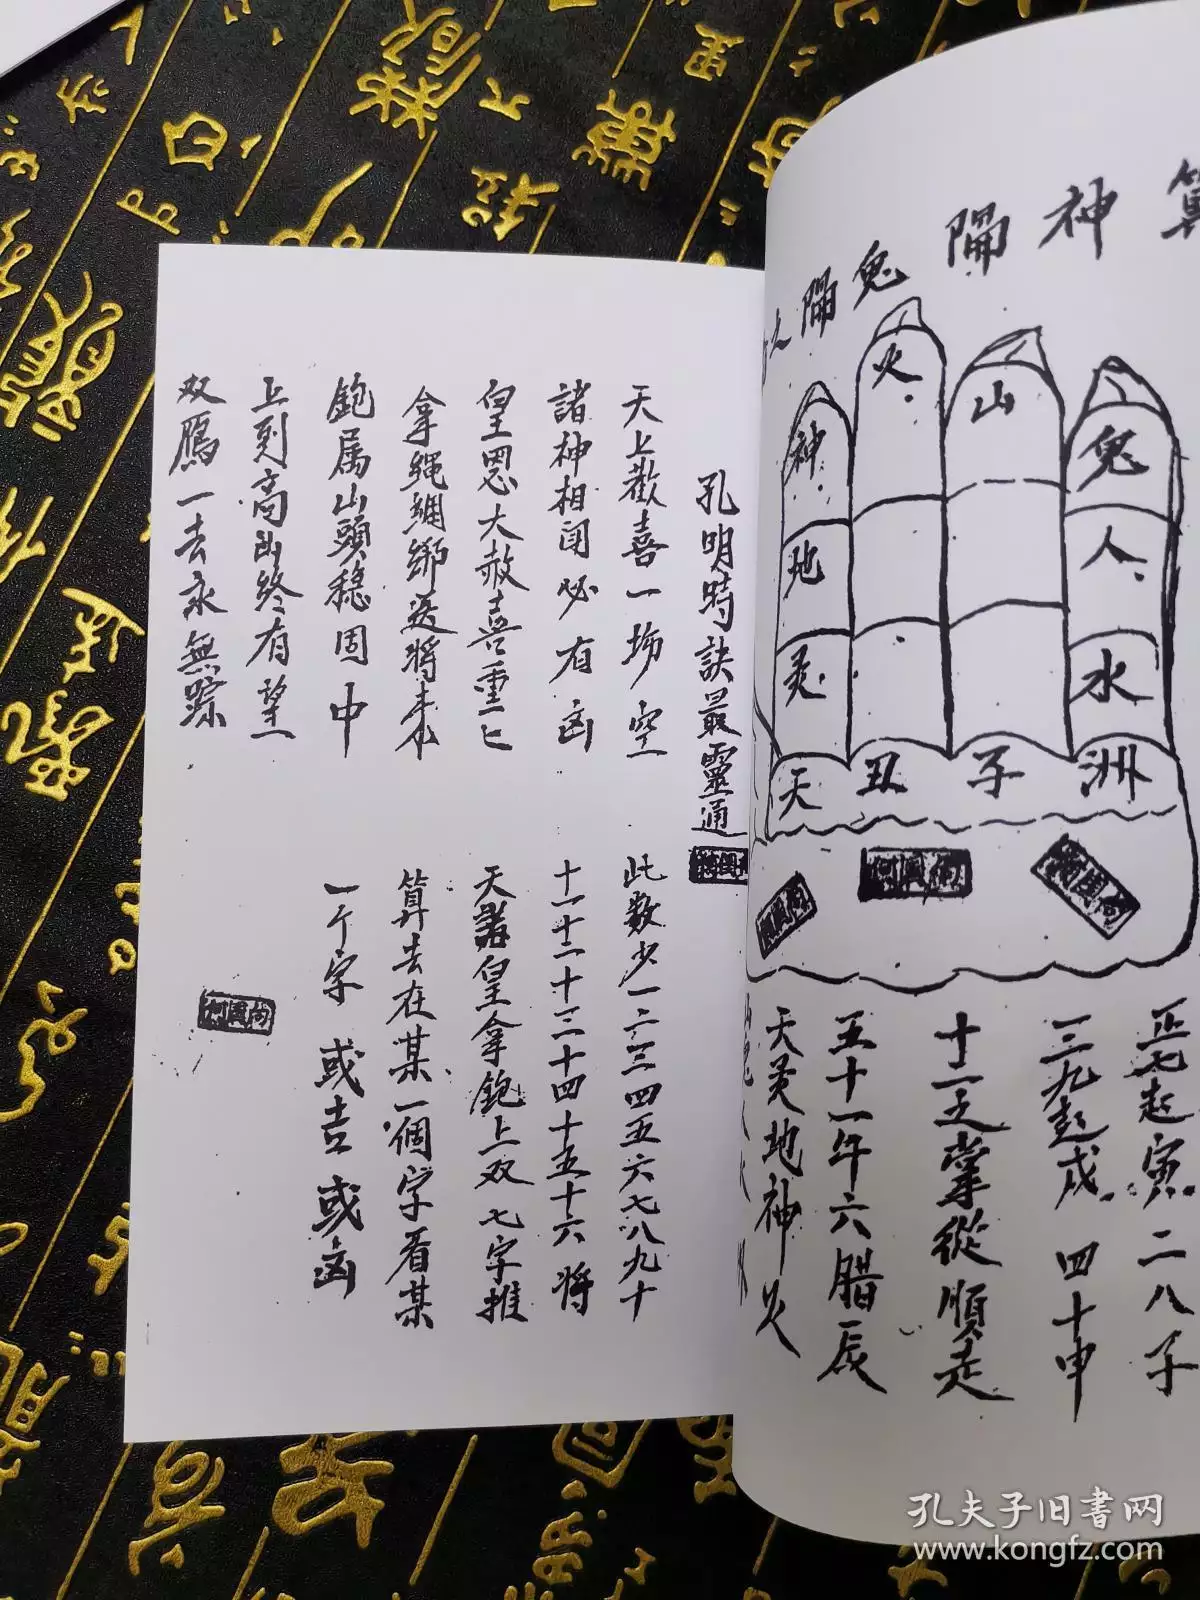 算神隔鬼隔之
神
火
山
鬼
地
人
灵
水
天
丑
子
洲
正七起寅二八子
三九起戌四十申
十二之掌從順走
五十一午六腊辰
天灵地神火
孔明時訣最靈通
天上歡喜一塲空
諸神相闭必有凶
皇恩大赦喜重七
拿绳綑綁送將来
鉋属山頭穏固中
上到高山終有望
双鴈一去永無踪
此数少一二三四五六七八九十
十一十二十三十四十五十六將
天諸皇拿鉋上双七字推
算去在某一個字看某
一个字或吉或凶
孔夫子旧书网
www.kongfz.com